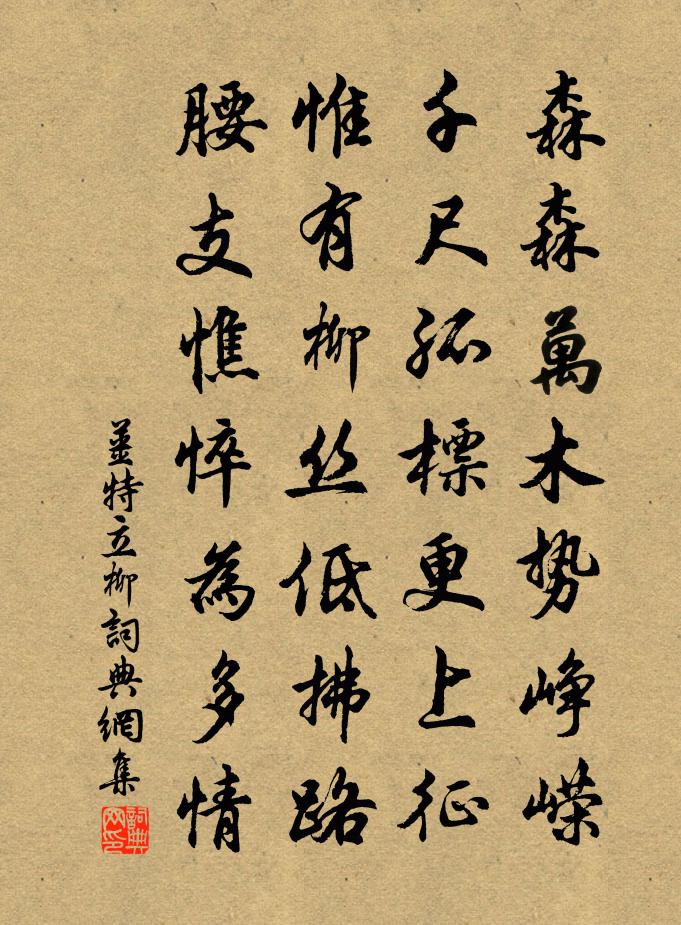 森森萬木势峥嵘
千尺孤標更上征
惟有柳丝低拂路
腰支憔悴為多情
姜特立柳詞典網集
詞典網印